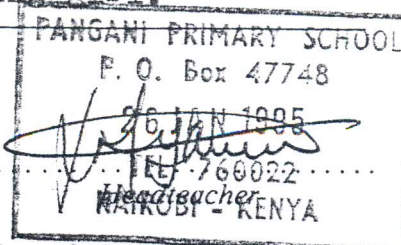 PANGANI PRIMARY SCHOOL
P. O. Box 47748
26 JAN 1995
TEL 760022
Headteacher
NAIROBI - KENYA